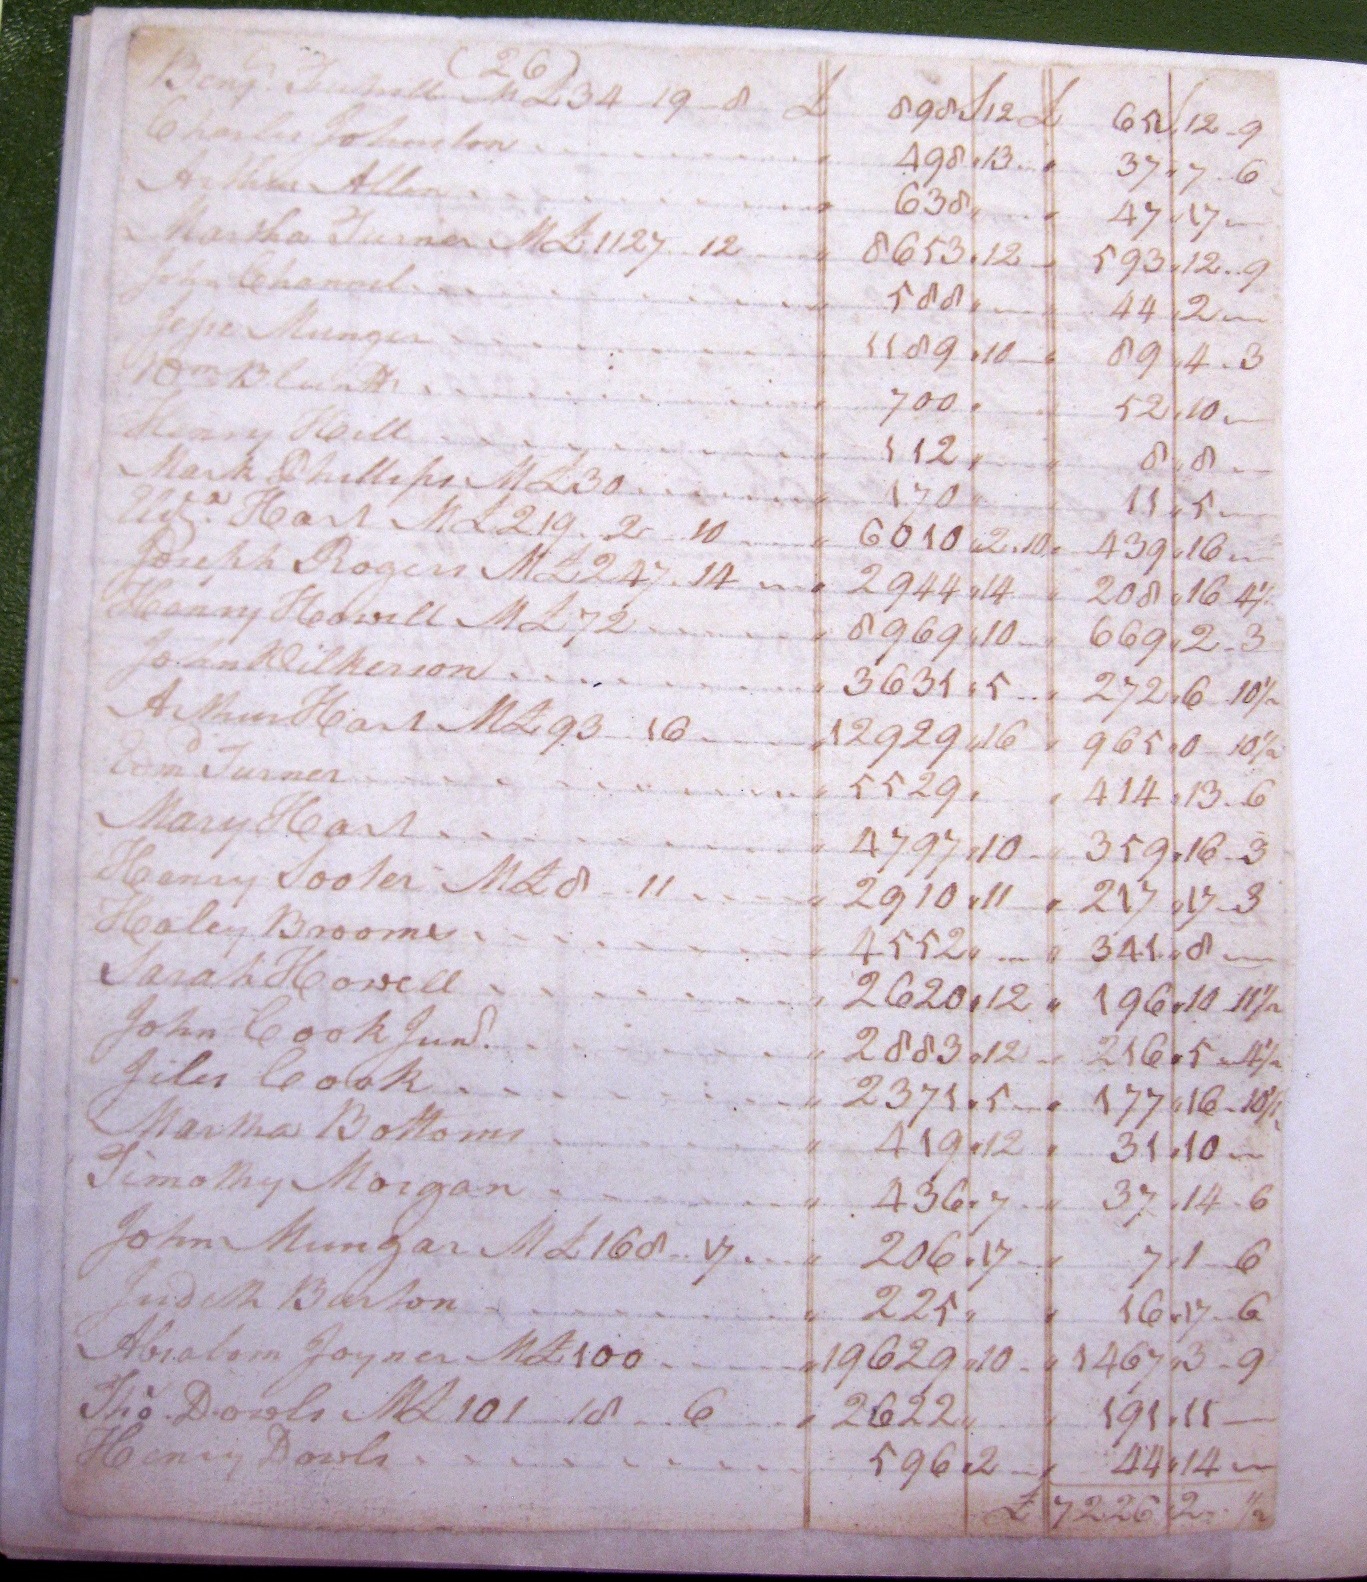 (26)
Benj. M£34 19 8 £ 898 12 £ 65 12 9
Charles Johnston 498 13 37 7 6
Arthur Allen 638 47 17
Martha Turner M£1127 12 8653 12 593 12 9
John Channel 588 44 2
Jesse Munger 1189 10 89 4 3
Wm Blunt 700 52 10
Henry Hill 112 8 8
Mark Phillips M£30 170 11 5
Hart M£219 2 10 6010 2 10 439 16
Joseph Rogers M£247 14 2944 14 208 16 4½
Henry Howell M£72 8969 10 669 2 3
John Wilkerson 3631 5 272 6 10½
Arthur Hart M£93 16 12929 16 965 0 10½
Edmd Turner 5529 414 13 6
Mary Hart 4797 10 359 16 3
Henry Sooter M£8 11 2910 11 217 17 3
Haley Broome 4552 341 8
Sarah Howell 2620 12 196 10 11½
John Cook Junr. 2883 12 216 5 4½
Jiles Cook 2371 5 177 16 10½
Martha Bottoms 419 12 31 10
Timothy Morgan 436 7 37 14 6
John Mungar M£168 17 206 17 7 1 6
Judeth Barton 225 16 17 6
Abraham Joyner M£100 19629 10 1467 3 9
Tho. Dowls M£101 18 6 2622 191 11
Henry Dowls 596 2 44 14
£ 7226 2 ½